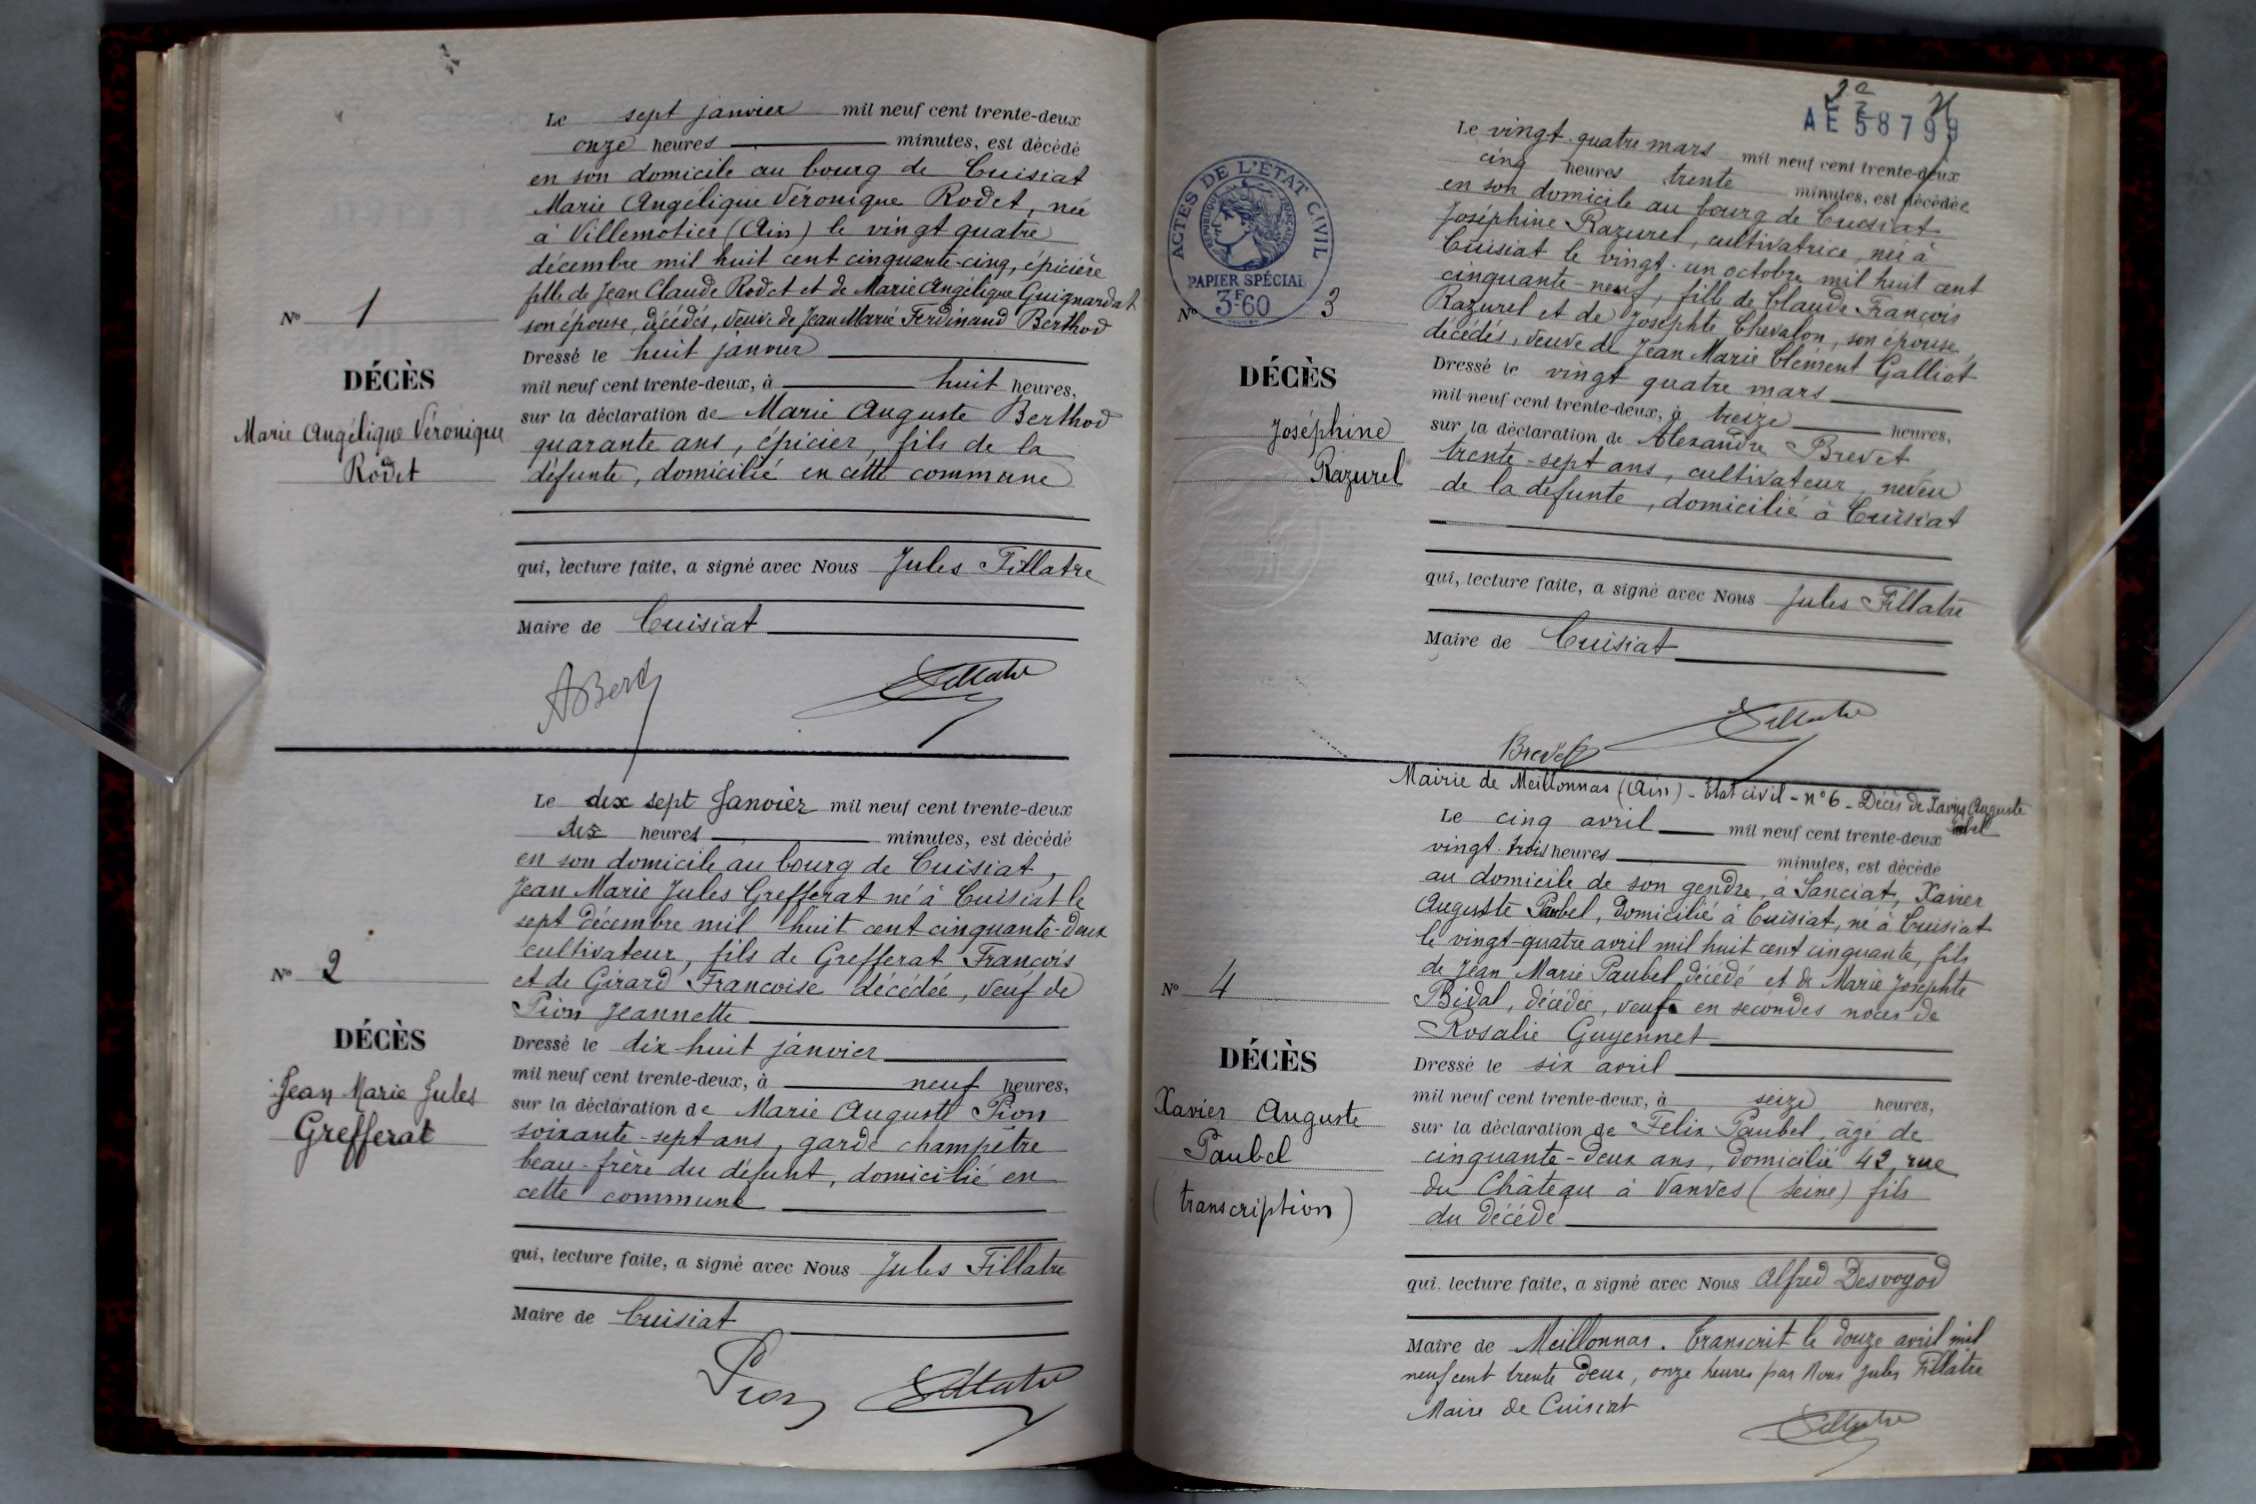 Le sept janvier mil neuf cent trente-deux
onze heures minutes, est décédé
en son domicile au bourg de Cuisiat
Marie Angélique Véronique Rodet, née
à Villemotier (Ain) le vingt quatre
décembre mil huit cent cinquante-cinq, épicière
fille de Jean Claude Rodet et de Marie Angélique Guignardat
son épouse, décédés, veuve de Jean Marie Ferdinand Berthod
Nº 1
Dressé le huit janvier
DÉCÈS
mil neuf cent trente-deux, à huit heures,
sur la déclaration de Marie Auguste Berthod
Marie Angélique Véronique
Rodet
quarante ans, épicier, fils de la
défunte, domicilié en cette commune
qui, lecture faite, a signé avec Nous Jules Fillatre
Maire de Cuisiat
ABerd
Fillatre
Le dix sept Janvier mil neuf cent trente-deux
dix heures minutes, est décédé
en son domicile au bourg de Cuisiat,
Jean Marie Jules Grefferat né à Cuisiat le
sept décembre mil huit cent cinquante-deux
cultivateur, fils de Grefferat François
et de Girard Françoise décédée, veuf de
Pion Jeannette
Nº 2
DÉCÈS
Jean Marie Jules
Grefferat
Dressé le dix-huit janvier
mil neuf cent trente-deux, à neuf heures,
sur la déclaration de Marie Auguste Pion
soixante-sept ans, garde champêtre
beau-frère du défunt, domicilié en
cette commune
qui, lecture faite, a signé avec Nous Jules Fillatre
Maire de Cuisiat
Pion
Fillatre
2e
AE 58799
ACTES DE L'ÉTAT CIVIL
RÉPUBLIQUE FRANÇAISE
PAPIER SPÉCIAL
3F60
Le vingt-quatre mars mil neuf cent trente-deux
cinq heures trente minutes, est décédée
en son domicile au bourg de Cuisiat
Joséphine Razurel, cultivatrice, née à
Cuisiat le vingt-un octobre mil huit cent
cinquante-neuf, fille de Claude François
Razurel et de Josephte Chevalon, son épouse,
décédés, veuve de Jean Marie Clément Galliot
Nº 3
DÉCÈS
Joséphine
Razurel
Dressé le vingt quatre mars
mil neuf cent trente-deux, à treize heures,
sur la déclaration de Alexandre Brevet
trente-sept ans, cultivateur, neveu
de la défunte, domicilié à Cuisiat
qui, lecture faite, a signé avec Nous Jules Fillatre
Maire de Cuisiat
Brevet
Fillatre
Mairie de Meillonnas (Ain) - Etat civil - nº 6 - Décès de Xavier Auguste
Paubel
Le cinq avril mil neuf cent trente-deux
vingt-trois heures minutes, est décédé
au domicile de son gendre, à Sanciat, Xavier
Auguste Paubel, domicilié à Cuisiat, né à Cuisiat
le vingt-quatre avril mil huit cent cinquante, fils
de Jean Marie Paubel décédé et de Marie Josephte
Bidal, décédée, veuf en secondes noces de
Rosalie Guyennet
Nº 4
DÉCÈS
Xavier Auguste
Paubel
(transcription)
Dressé le six avril
mil neuf cent trente-deux, à seize heures,
sur la déclaration de Felix Paubel, âgé de
cinquante-deux ans, domicilié 42, rue
du Château à Vanves (Seine) fils
du décédé
qui, lecture faite, a signé avec Nous Alfred Desvoyod
Maire de Meillonnas. Transcrit le douze avril mil
neuf cent trente deux, onze heures par Nous Jules Fillatre
Maire de Cuisiat
Fillatre